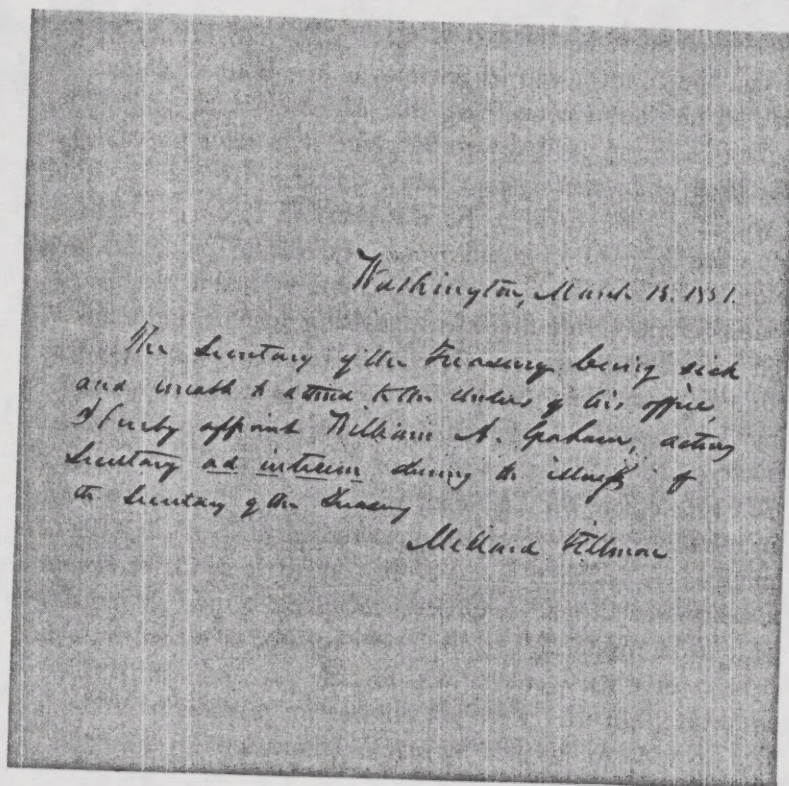 Washington, March 15. 1851.
The Secretary of the Treasury being sick
and unable to attend to the duties of his office,
I hereby appoint William A. Graham, acting
Secretary ad interim during the illness of
the Secretary of the Treasury
Millard Fillmore